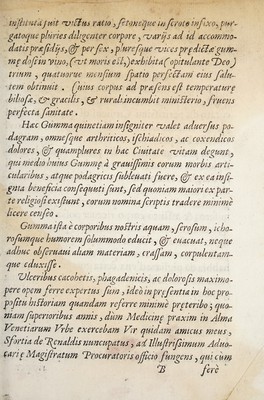 instituta fuit victus ratio, setoneque in scroto infixo, pur-
gatoque pluries diligenter corpore, varijs ad id accommo-
datis præsidijs, & per sex, pluresque vices prædictæ gum-
mę dosi in vino, (vt moris est,) exhibita (opitulante Deo)
trium, quatuorue mensium spatio perfectam eius salu-
tem obtinuit. Cuius corpus ad præsens est temperaturæ
biliosæ, & gracilis, & rurali incumbit ministerio, fruens
perfecta sanitate.
Hæc Gumma quinetiam insigniter valet aduersus po-
dagram, omnesque arthriticos, ischiadicos, ac coxendicos
dolores, & quamplures in hac Ciuitate vitam degunt,
qui medio huius Gummę à grauissimis eorum morbis arti-
cularibus, atque podagricis subleuati fuere, & ex ea insi-
gnia beneficia consequuti sunt, sed quoniam maiori ex par-
te religiosi existunt, eorum nomina scriptis tradere minimè
licere censeo.
Gumma ista è corporibus nostris aquam, serosum, icho-
rosumque humorem solummodo educit, & euacuat, neque
adhuc obseruaui aliam materiam, crassam, corpulentam-
que eduxisse.
Vlceribus cacohetis, phagadenicis, ac dolorosis maximo-
pere opem ferre expertus sum, ideò in præsentia in hoc pro-
positu historiam quandam referre minimè pręteribo; quo-
niam superioribus annis, dùm Medicinę praxim in Alma
Venetiarum Vrbe exercebam Vir quidam amicus meus,
Sfortia de Renaldis nuncupatus, ad Illustrissimum Aduo-
carię Magistratum Procuratoris officio fungens, qui cùm
B ferè